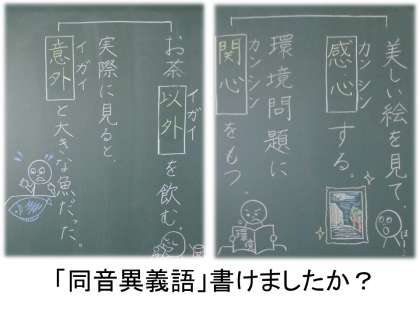 美しい絵を見て、
カンシン
感心する。
環境問題に
カンシン
関心をもつ。
イガイ
お茶以外を飲む
実際に見ると、
イガイ
意外と大きな魚だった。
「同音異義語」書けましたか？